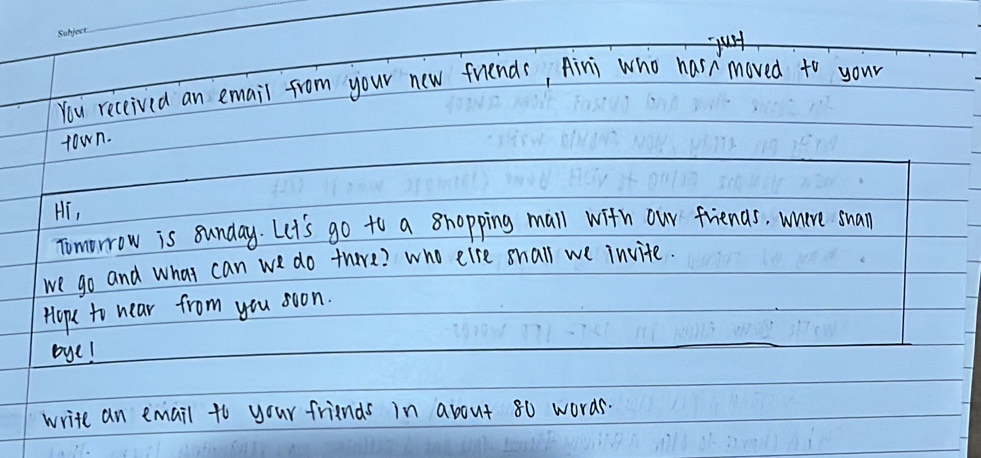 Subject
You received an email from your new friends, Aini who has just moved to your
town.
Hi,
Tomorrow is sunday. Let's go to a shopping mall with our friends. Where shall
we go and what can we do there? Who else shall we invite.
Hope to hear from you soon.
Bye!
Write an email to your friends in about 80 words.